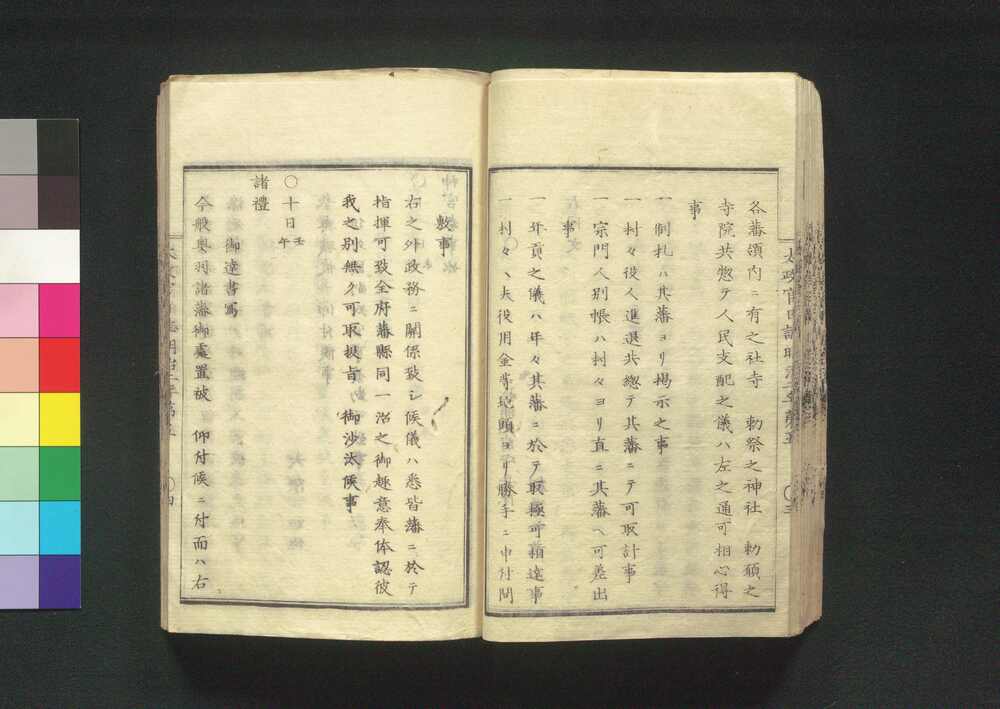 各藩領内ニ有之社寺　勅祭之神社　勅願之
寺院共惣テ人民支配之儀ハ左之通可相心得
事
一制札ハ其藩ヨリ掲示之事
一村々役人進退共總テ其藩ニテ可取計事
一宗門人別帳ハ村々ヨリ直ニ其藩ヘ可差出
事
一年貢之儀ハ年々其藩ニ於テ取極可相達事
一村々ヽ夫役用金等地頭ヨリ勝手ニ申付間
敷事
右之外政務ニ關係致シ候儀ハ悉皆藩ニ於テ
指揮可致全府藩縣同一治之御趣意奉体認彼
我之別無ク可取扱旨　御沙汰候事
○十日壬午
御達書寫
諸禮
今般奥羽諸藩御處置被　仰付候ニ付面ハ右
○四